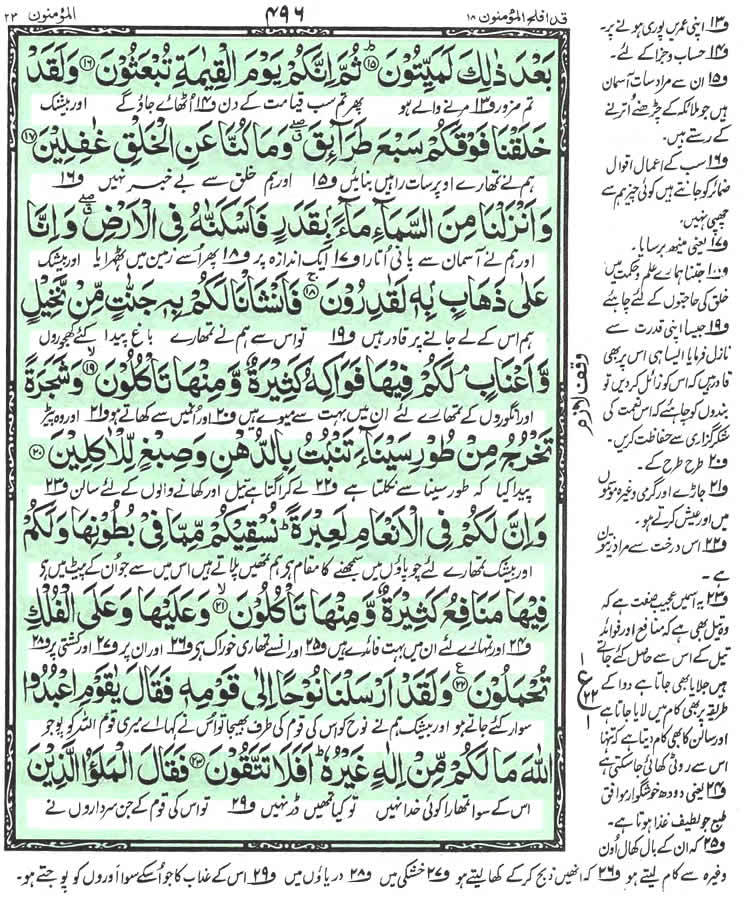 قد افلح المؤمنون ۱۸
۴۹۶
المؤمنون ۲۳
بَعْدَ ذٰلِكَ لَمَيِّتُوْنَ ۱۵ ثُمَّ اِنَّكُمْ يَوْمَ الْقِيٰمَةِ تُبْعَثُوْنَ ۱۶ وَلَقَدْ
تم ضرور و۱۳ مرنے والے ہو پھر تم سب قیامت کے دن و۱۴ اٹھائے جاؤ گے اور بیشک
خَلَقْنَا فَوْقَكُمْ سَبْعَ طَرَآئِقَ ۖ وَمَا كُنَّا عَنِ الْخَلْقِ غٰفِلِيْنَ ۱۷
ہم نے تمھارے اوپر سات راہیں بنائیں و۱۵ اور ہم خلق سے بے خبر نہیں و۱۶
وَاَنْزَلْنَا مِنَ السَّمَآءِ مَآءً بِقَدَرٍ فَاَسْكَنّٰهُ فِى الْاَرْضِ ۖ وَاِنَّا
اور ہم نے آسمان سے پانی اُتارا و۱۷ ایک اندازہ پر و۱۸ پھر اُسے زمین میں ٹھہرایا اور بیشک
عَلٰى ذَهَابٍۭ بِهٖ لَقٰدِرُوْنَ ۱۸ فَاَنْشَاْنَا لَكُمْ بِهٖ جَنّٰتٍ مِّنْ نَّخِيْلٍ
ہم اس کے لے جانے پر قادر ہیں و۱۹ تو اس سے ہم نے تمھارے باغ پیدا کئے کھجوروں
وَّاَعْنَابٍ ۘ لَكُمْ فِيْهَا فَوَاكِهُ كَثِيْرَةٌ وَّمِنْهَا تَاْكُلُوْنَ ۱۹ وَشَجَرَةً
اور انگوروں کے تمھارے لئے ان میں بہت سے میوے ہیں و۲۰ اور اُنمیں سے کھاتے ہو و۲۱ اور وہ پیڑ
تَخْرُجُ مِنْ طُوْرِ سَيْنَآءَ تَنْۢبُتُ بِالدُّهْنِ وَصِبْغٍ لِّلْاٰكِلِيْنَ ۲۰
پیدا کیا کہ طور سینا سے نکلتا ہے و۲۲ لے کر اگتا ہے تیل اور کھانے والوں کے لئے سالن و۲۳
وَاِنَّ لَكُمْ فِى الْاَنْعَامِ لَعِبْرَةً ؕ نُسْقِيْكُمْ مِّمَّا فِىْ بُطُوْنِهَا وَلَكُمْ
اور بیشک تمھارے لئے چوپاؤں میں سمجھنے کا مقام ہی ہم تمھیں پلاتے ہیں اس میں سے جو اُن کے پیٹ میں ہی
فِيْهَا مَنَافِعُ كَثِيْرَةٌ وَّمِنْهَا تَاْكُلُوْنَ ۲۱ وَعَلَيْهَا وَعَلَى الْفُلْكِ
و۲۴ اور تمہارے لئے ان میں بہت فائدے ہیں و۲۵ اور انسے تمھاری خوراک ہی و۲۶ اور ان پر و۲۷ اور کشتی پر و۲۸
تُحْمَلُوْنَ ۲۲ وَلَقَدْ اَرْسَلْنَا نُوْحًا اِلٰى قَوْمِهٖ فَقَالَ يٰقَوْمِ اعْبُدُوا
سوار کئے جاتے ہو اور بیشک ہم نے نوح کو اس کی قوم کی طرف بھیجا تو اس نے کہا اے میری قوم اللہ کو پوجو
اللّٰهَ مَا لَكُمْ مِّنْ اِلٰهٍ غَيْرُهٗ ؕ اَفَلَا تَتَّقُوْنَ ۲۳ فَقَالَ الْمَلَؤُا الَّذِيْنَ
اس کے سوا تمھارا کوئی خدا نہیں تو کیا تمھیں ڈر نہیں و۲۹ تو اس کی قوم کے جن سرداروں نے
وقف لازم
ع
۲۲
و۱۳ اپنی عمریں پوری ہونے پر۔
و۱۴ حساب و جزا کے لئے۔
و۱۵ ان سے مراد سات آسمان
ہیں جو ملائکہ کے چڑھنے اُترنے
کے رستے ہیں۔
و۱۶ سب کے اعمال اقوال
ضمائر کو جانتے ہیں کوئی چیز ہم سے
چھپی نہیں۔
و۱۷ یعنی مینھ برسایا۔
و۱۸ جتنا ہمارے علم و حکمت میں
خلق کی حاجتوں کے لئے چاہئے
و۱۹ جیسا اپنی قدرت سے
نازل فرمایا ایسا ہی اس پر بھی
قادر ہیں کہ اس کو زائل کردیں تو
بندوں کو چاہئے کہ اس نعمت کی
شکر گزاری سے حفاظت کریں۔
و۲۰ طرح طرح کے۔
و۲۱ جاڑے اور گرمی وغیرہ موسموں
میں اور عیش کرتے ہو۔
و۲۲ اس درخت سے مراد زیتون
ہے۔
و۲۳ یہ اسمیں عجیب صفت ہے کہ
وہ تیل بھی ہے کہ منافع اور فوائد
تیل کے اس سے حاصل کئے جاتے
ہیں جلایا بھی جاتا ہے دوا کے
طریقہ پر بھی کام میں لایا جاتا ہے
اور سالن کا بھی کام دیتا ہے کہ تنہا
اس سے روٹی کھائی جاسکتی ہے
و۲۴ یعنی دودھ خوشگوار موافق
طبع جو لطیف غذا ہوتا ہے۔
و۲۵ کہ ان کے بال کھال اُون
وغیرہ سے کام لیتے ہو و۲۶ کہ انھیں ذبح کرکے کھا لیتے ہو و۲۷ خشکی میں و۲۸ دریاؤں میں و۲۹ اس کے عذاب کا جو اُسکے سوا اَوروں کو پوجتے ہو۔